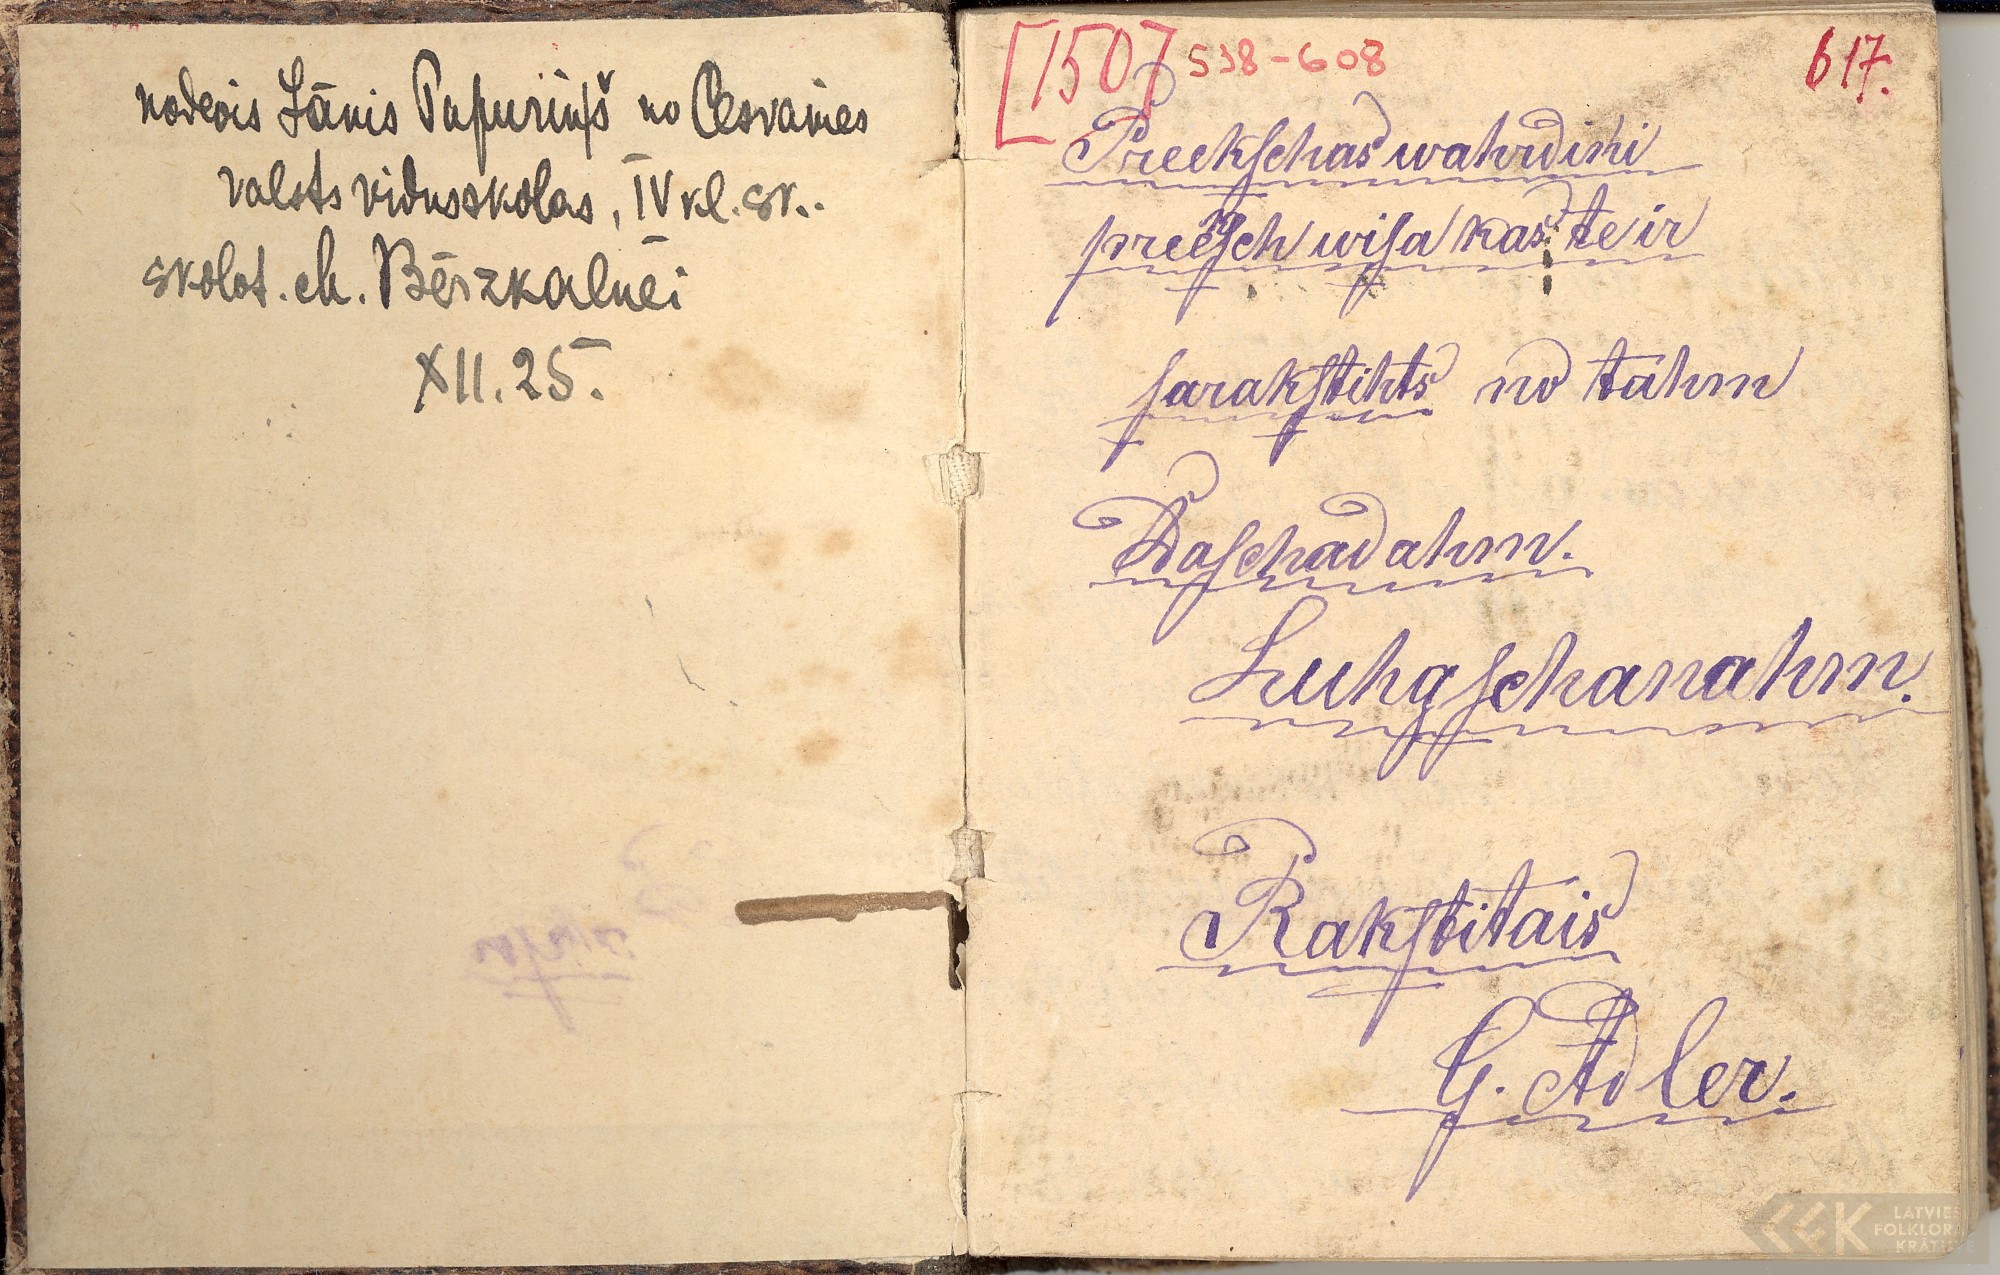 nodevis Jānis Pupuriņš no Cesvaines
valsts vidusskolas, IV kl. sk..
skolot. ch. Bērzkalnei
XII. 25.
[150] 538-608
617.
Preekschas wahrdini
preeksch wisa kas te ir
sarakstihts no tahm
Daschadahm.
Luhgschanahm.
Rakstitais
G. Adler.
LATVIE
FOLKLOR
KRĀT